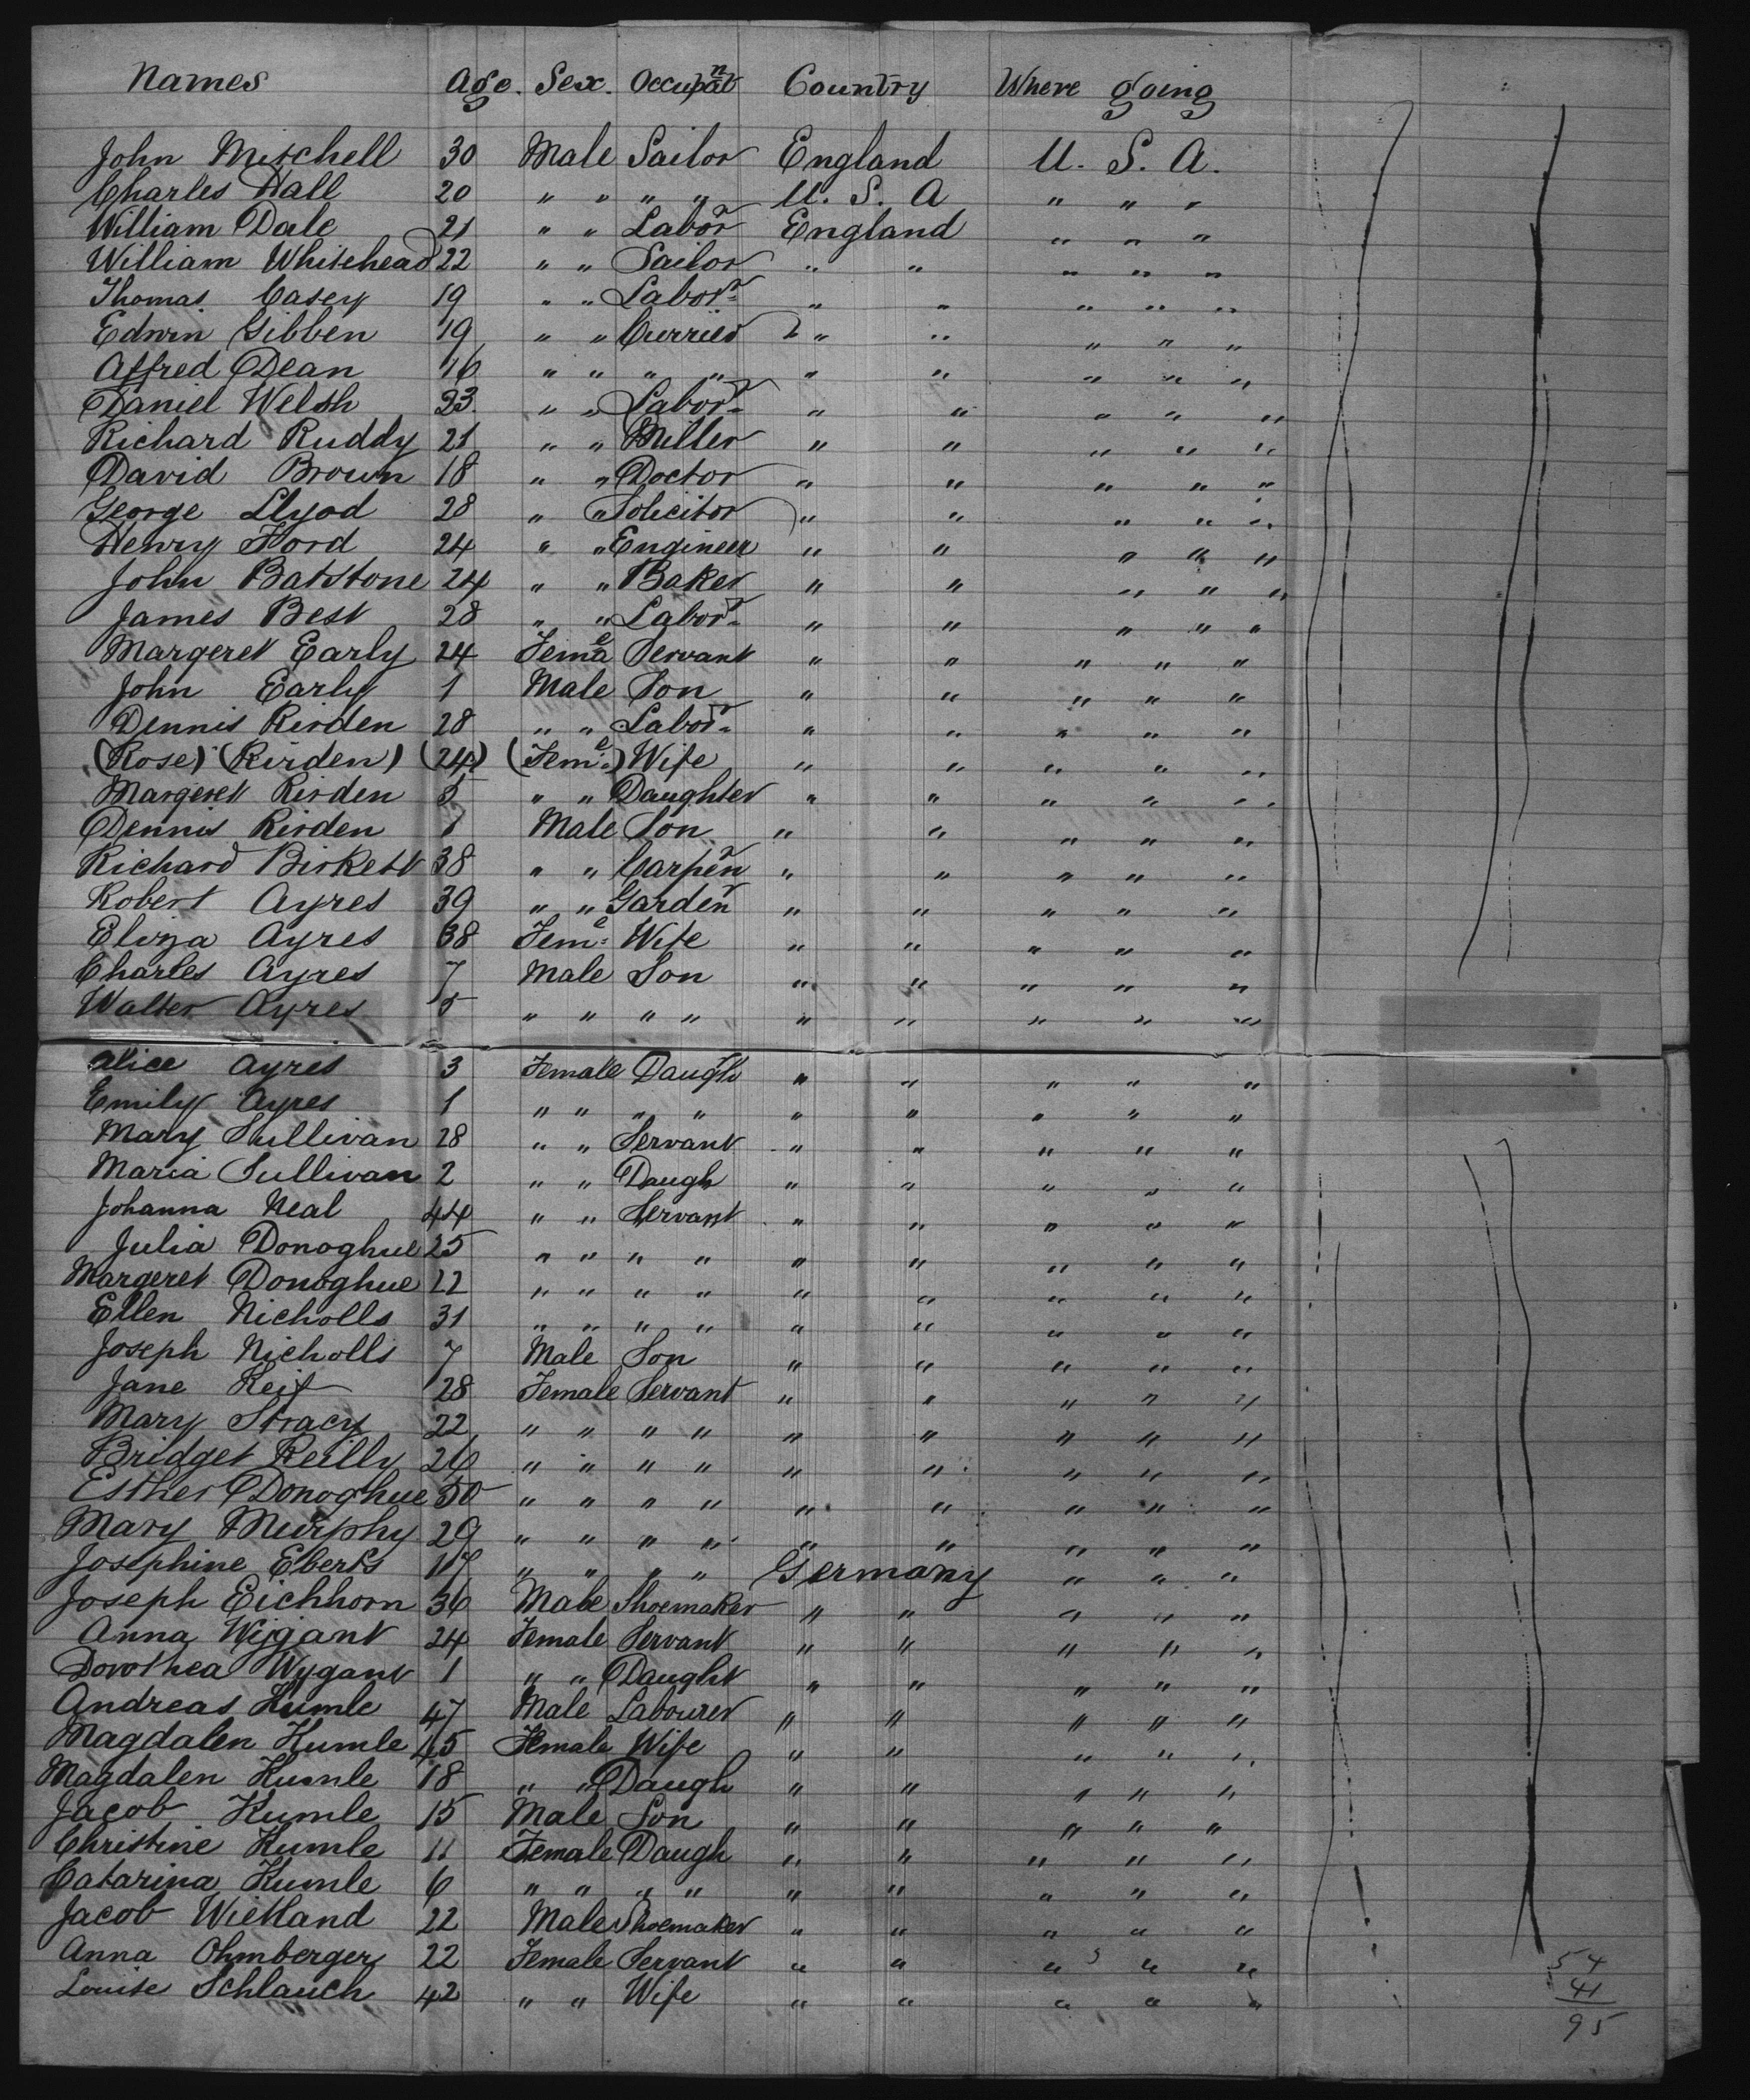 Names Age. Sex. Occupatn Country Where going
John Mitchell 30 Male Sailor England U. S. A.
Charles Hall 20 " " " " U. S. A " " "
William Dale 21 " " Labor England " " "
William Whitehead 22 " " Sailor " " " " "
Thomas Casey 19 " " Labor " " " " "
Edwin Gibben 19 " " Currier " " " " "
Alfred Dean 16 " " " " " " " " "
Daniel Welsh 23 " " Labor " " " " "
Richard Ruddy 21 " " Miller " " " " "
David Brown 18 " " Doctor " " " " "
George Llyod 28 " " Solicitor " " " " "
Henry Ford 24 " " Engineer " " " " "
John Batstone 24 " " Baker " " " " "
James Best 28 " " Labor " " " " "
Margeret Early 24 Femae Servant " " " " "
John Early 1 Male Son " " " " "
Dennis Rirden 28 " " Labor " " " " "
(Rose) (Rirden) (24) (Feme) Wife " " " " "
Margeret Rirden " " Daughter " " " " "
Dennis Rirden Male Son " " " " "
Richard Birkett 38 " " Carpenr " " " " "
Robert Ayres 39 " " Gardenr " " " " "
Eliza Ayres 38 Feme Wife " " " " "
Charles Ayres 7 Male Son " " " " "
Walter Ayres 5 " " " " " " " " "
Alice Ayres 3 Female Daughr " " " " "
Emily Ayres 1 " " " " " " " " "
Mary Sullivan 28 " " Servant " " " " "
Maria Sullivan 2 " " Daugh " " " " "
Johanna Neal 44 " " Servant " " " " "
Julia Donoghue 25 " " " " " " " " "
Margeret Donoghue 22 " " " " " " " " "
Ellen Nicholls 31 " " " " " " " " "
Joseph Nicholls 7 Male Son " " " " "
Jane 28 Female Servant " " " " "
Mary Stracy 22 " " " " " " " " "
Bridget Reilly 26 " " " " " " " " "
Esther Donoghue 50 " " " " " " " " "
Mary Murphy 29 " " " " " " " " "
Josephine Eberts 17 " " " " Germany " " "
Joseph Eichhorn 36 Male Shoemaker " " " " "
Anna Wygant 24 Female Servant " " " " "
Dorothea Wygant 1 " " Daught " " " " "
Andreas Kumle 47 Male Labourer " " " " "
Magdalen Kumle 45 Female Wife " " " " "
Magdalen Kumle 18 " " Daugh " " " " "
Jacob Kumle 15 Male Son " " " " "
Christine Kumle 11 Female Daugh " " " " "
Catarina Kumle 6 " " " " " " " " "
Jacob Wieland 22 Male Shoemaker " " " " "
Anna Ohmberger 22 Female Servant " " " " "
Louise Schlauch 42 " " Wife " " " " "
54
41
95